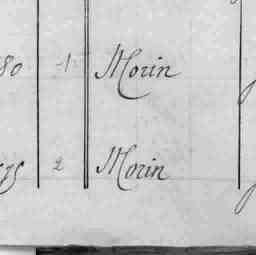 80 -1- Morin
2 Morin